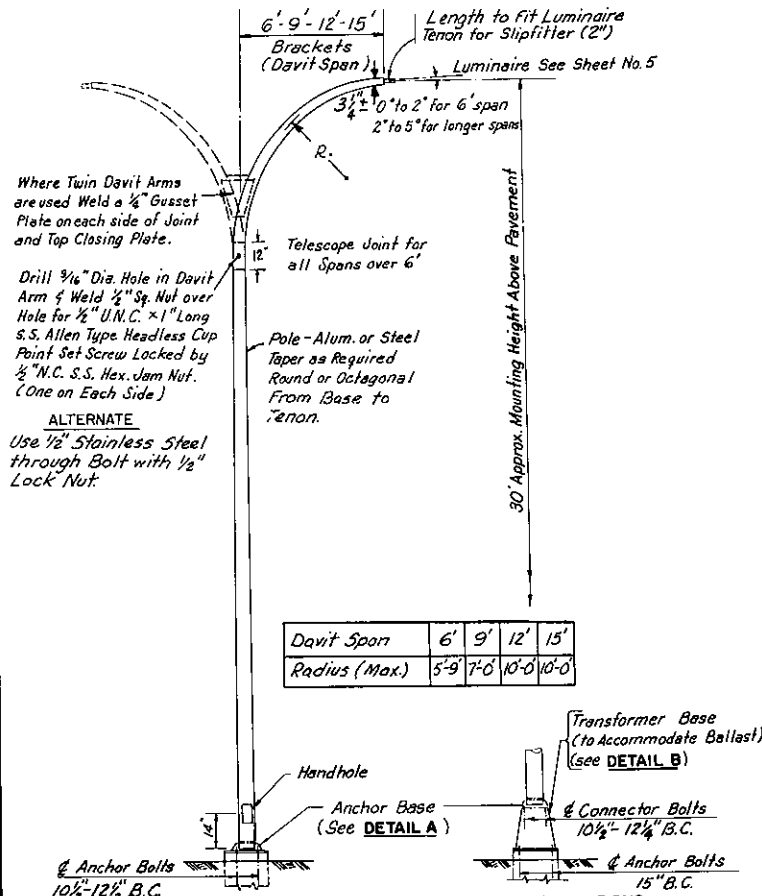 6'-9'-12'-15'
Brackets
(Davit Span)
Length to Fit Luminaire
Tenon for Slipfitter (2")
Luminaire See Sheet No. 5
3 1/4" ± 0° to 2° for 6' span
2° to 5° for longer spans
R.
Where Twin Davit Arms
are used Weld a 1/4" Gusset
Plate on each side of Joint
and Top Closing Plate.
12"
Telescope Joint for
all Spans over 6'
Drill 9/16" Dia. Hole in Davit
Arm & Weld 1/2" Sq. Nut over
Hole for 1/2" U.N.C. x 1" Long
S.S. Allen Type Headless Cup
Point Set Screw Locked by
1/2" N.C. S.S. Hex. Jam Nut.
(One on Each Side)
ALTERNATE
Use 1/2" Stainless Steel
through Bolt with 1/2"
Lock Nut.
Pole - Alum. or Steel
Taper as Required
Round or Octagonal
From Base to
Tenon.
30' Approx. Mounting Height Above Pavement
Davit Span 6' 9' 12' 15'
Radius (Max.) 5'-9" 7'-0" 10'-0" 10'-0"
Handhole
14"
Anchor Base
(See DETAIL A)
Transformer Base
(to Accommodate Ballast)
(see DETAIL B)
℄ Connector Bolts
10 1/2" - 12 1/4" B.C.
℄ Anchor Bolts
10 1/2" - 12 1/2" B.C.
℄ Anchor Bolts
15" B.C.